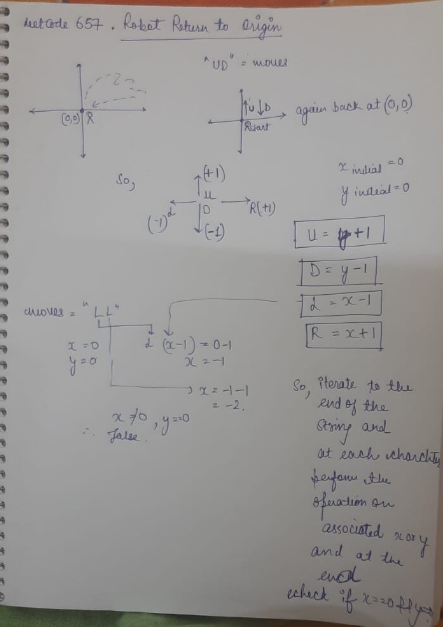 Leetcode 657. Robot Return to Origin
"UD" = moves
(0,0) R
U D
Restart
again back at (0,0)
So,
(+1)
U
(-1) L
R(+1)
D
(-1)
x initial = 0
y initial = 0
U = y+1
D = y-1
L = x-1
R = x+1
moves = "LL"
x = 0
y = 0
L (x-1) = 0-1
x = -1
x = -1-1
= -2.
x ≠ 0, y = 0
∴ False.
So, iterate to the
end of the
string and
at each charchter
perform the
operation on
associated x or y
and at the
end
check if x==0 && y==0